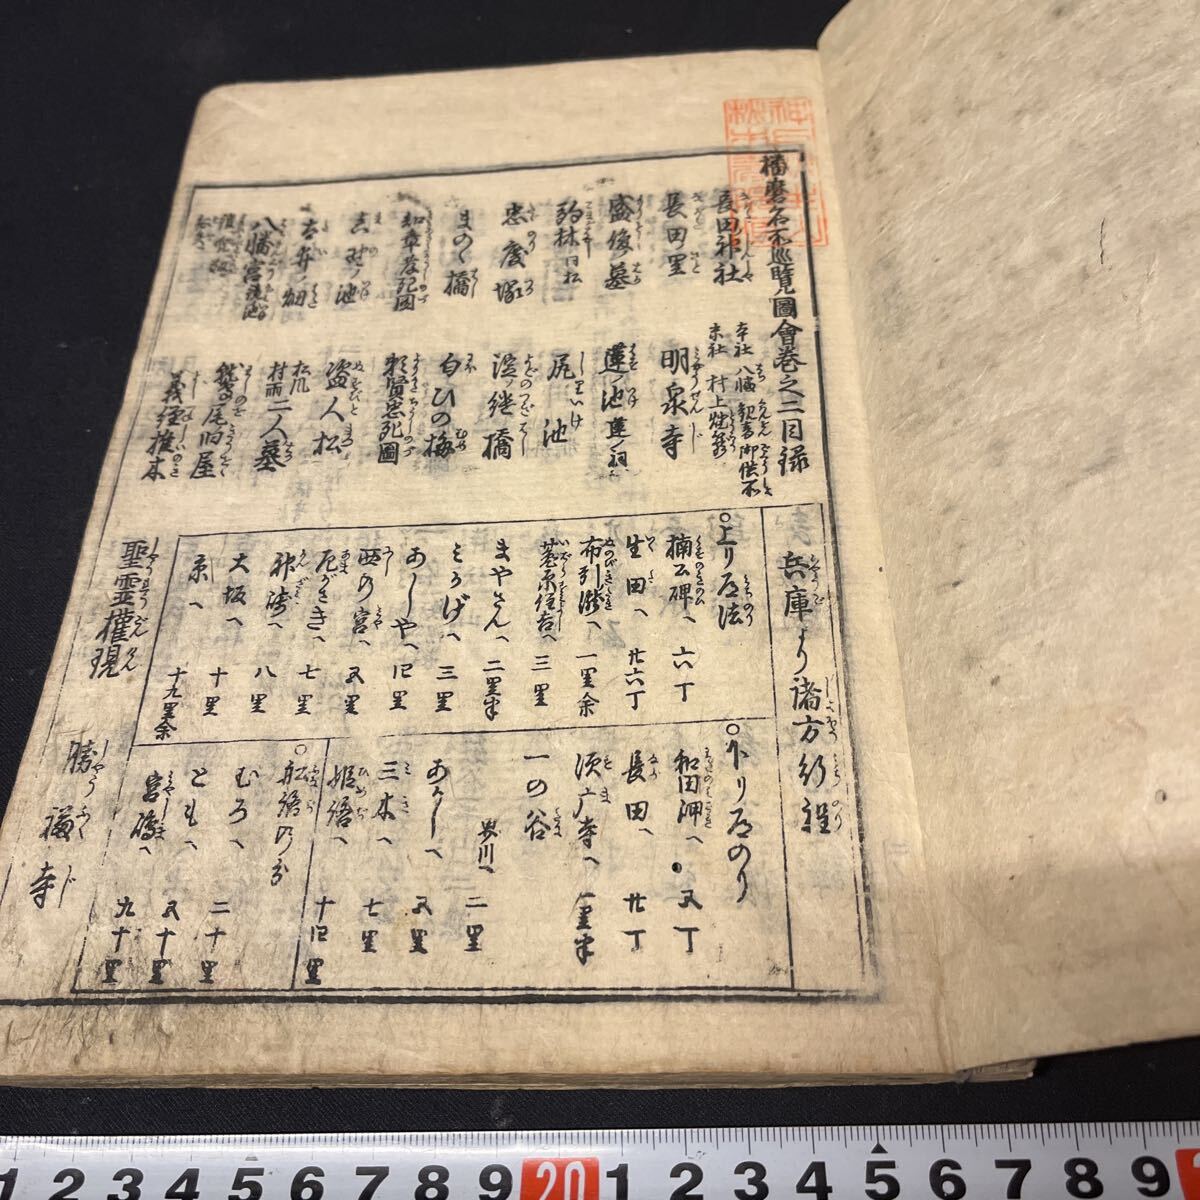 播磨名所巡覧圖會巻之二目録
長田神社
本社 八幡 観音 御供所
末社 村上
長田里
明泉寺
盛俊墓
蓮ノ池 蓮ノ祠
駒林 日松
尻池
忠度塚
淀ノ継橋
まのゝ橋
白ひの梅
知章孝死圖
頼賢忠死圖
真野ノ池
盗人松
吉井ノ畑
松风 村雨 二人墓
八幡宮
鷲尾旧屋
義經推木
兵庫より諸方行程
○上り道法
楠公碑へ 六丁
生田へ 廿六丁
布引滝へ 一里余
莵原住吉へ 三里
まやさんへ 二里半
みかげへ 三里
あしやへ 四里
西の宮へ 五里
尼がさきへ 七里
神崎へ 八里
大坂へ 十里
京へ 十九里余
○下り道のり
和田岬へ 五丁
長田へ 廿丁
須广寺へ 一里半
一の谷
界川へ 二里
あかしへ 五里
三木へ 七里
姫路へ 十四里
○舩路の分
むろへ 二十里
ともへ 五十里
宮嶋へ 九十里
聖霊權現
勝福寺
1 2 3 4 5 6 7 8 9 20 1 2 3 4 5 6 7 8 9